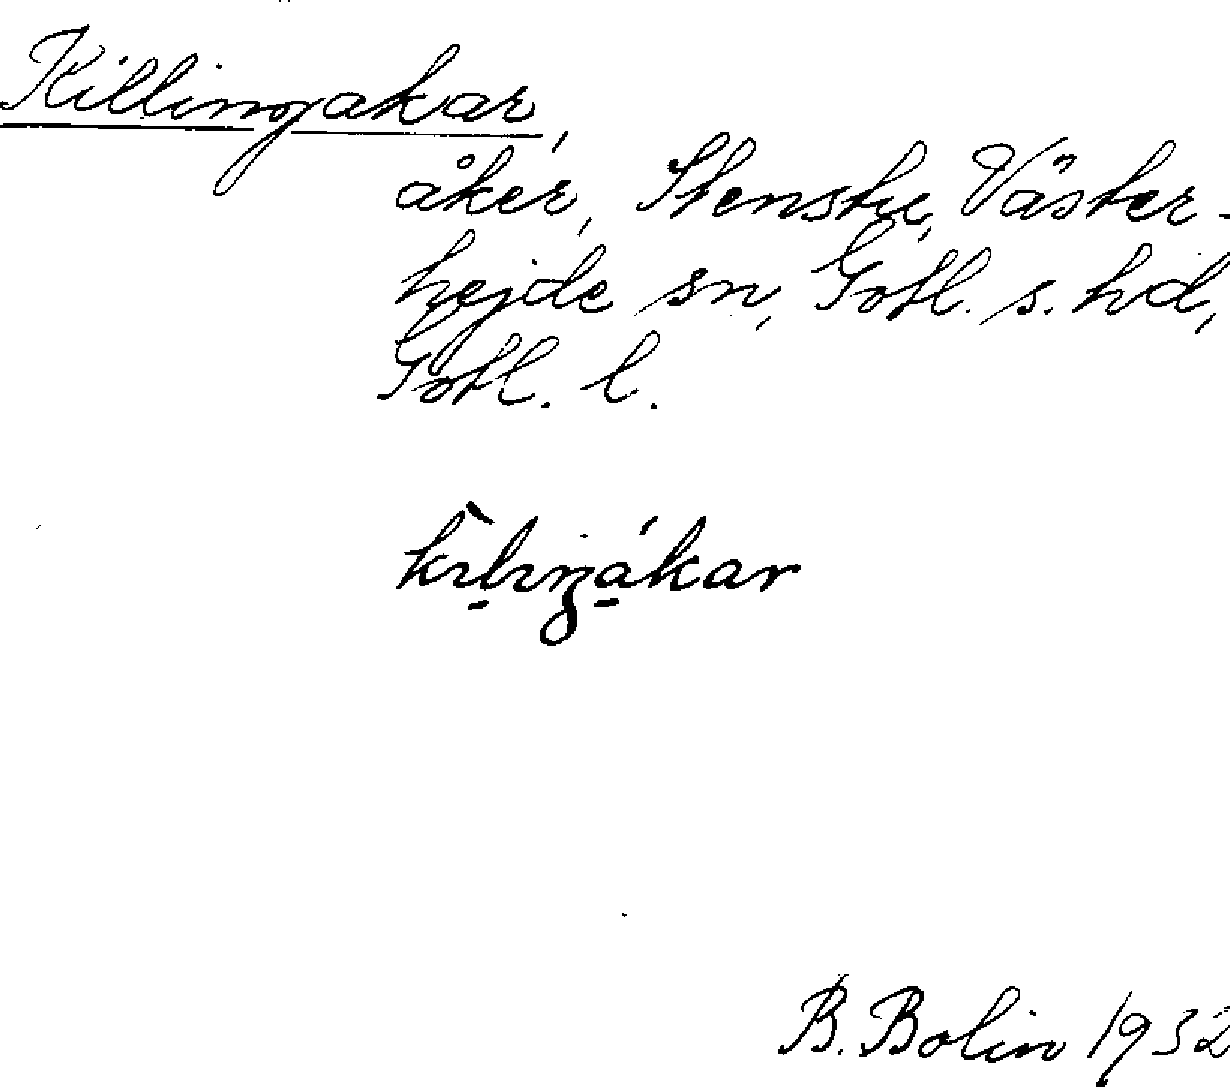 Killingakar,
åker, Stenstu, Väster-
hejde sn, Gotl. s. hd,
Gotl. l.
B. Bolin 1932